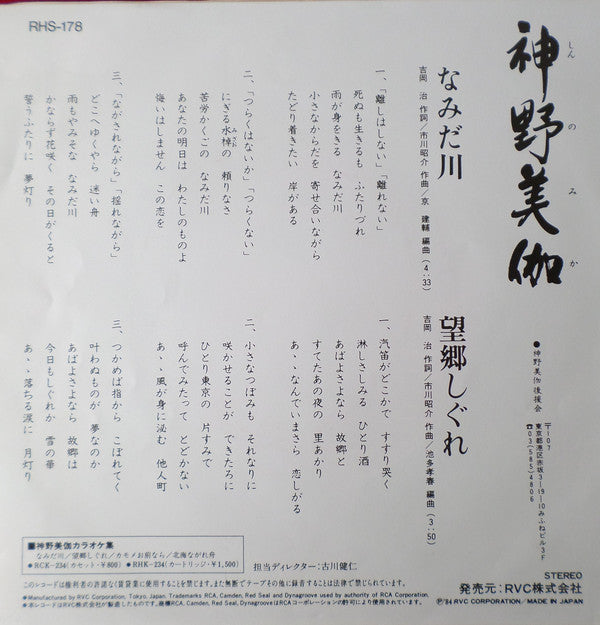 RHS-178
神野美伽
しんのみか
なみだ川
吉岡 治 作詞/市川昭介 作曲/京 建輔 編曲(4:33)
一、「離しはしない」「離れない」
死ぬも生きるも ふたりづれ
雨が身をきる なみだ川
小さなからだを 寄せ合いながら
たどり着きたい 岸がある
二、「つらくはないか」「つらくない」
にぎる水棹の 頼りなさ
みさお
苦労かくごの なみだ川
あなたの明日は わたしのものよ
悔いはしません この恋を
三、「ながされながら」「揺れながら」
どこへゆくやら 迷い舟
雨もやみそな なみだ川
かならず花咲く その日がくると
誓うふたりに 夢灯り
望郷しぐれ
吉岡 治 作詞/市川昭介 作曲/池多孝春 編曲(3:50)
一、汽笛がどこかで すすり哭く
淋しさしみる ひとり酒
あばよさよなら 故郷と
すてたあの夜の 里あかり
あゝなんでいまさら 恋しがる
二、小さなつぼみも それなりに
咲かせることが できたろに
ひとり東京の 片すみで
呼んでみたって とどかない
あゝ風が身に泌む 他人町
三、つかめば指から こぼれてく
叶わぬものが 夢なのか
あばよさよなら 故郷は
今日もしぐれか 雪の華
あゝ落ちる涙に 月灯り
●神野美伽後援会
〒107
東京都港区赤坂3-19-10みふねビル3F
☎03(585)4806
■神野美伽カラオケ集
なみだ川/望郷しぐれ/カモメお前なら/北海ながれ舟
●RCK-234(カセット・¥800) ●RHK-234(カートリッジ・¥1,500)
担当ディレクター:古川健仁
このレコードは権利者の許諾なく賃貸業に使用することを禁じます。また無断でテープその他に録音することは法律で禁じられています。
●Manufactured by RVC Corporation, Tokyo, Japan. Trademarks RCA, Camden, Red Seal and Dynagroove used by authority of RCA Corporation.
●本レコードはRVC株式会社が製造したものです。商標RCA, Camden, Red Seal, DynagrooveはRCAコーポレーションの許可により使用されています。
STEREO
発売元:RVC株式会社
Ⓟ'84 RVC CORPORATION/MADE IN JAPAN